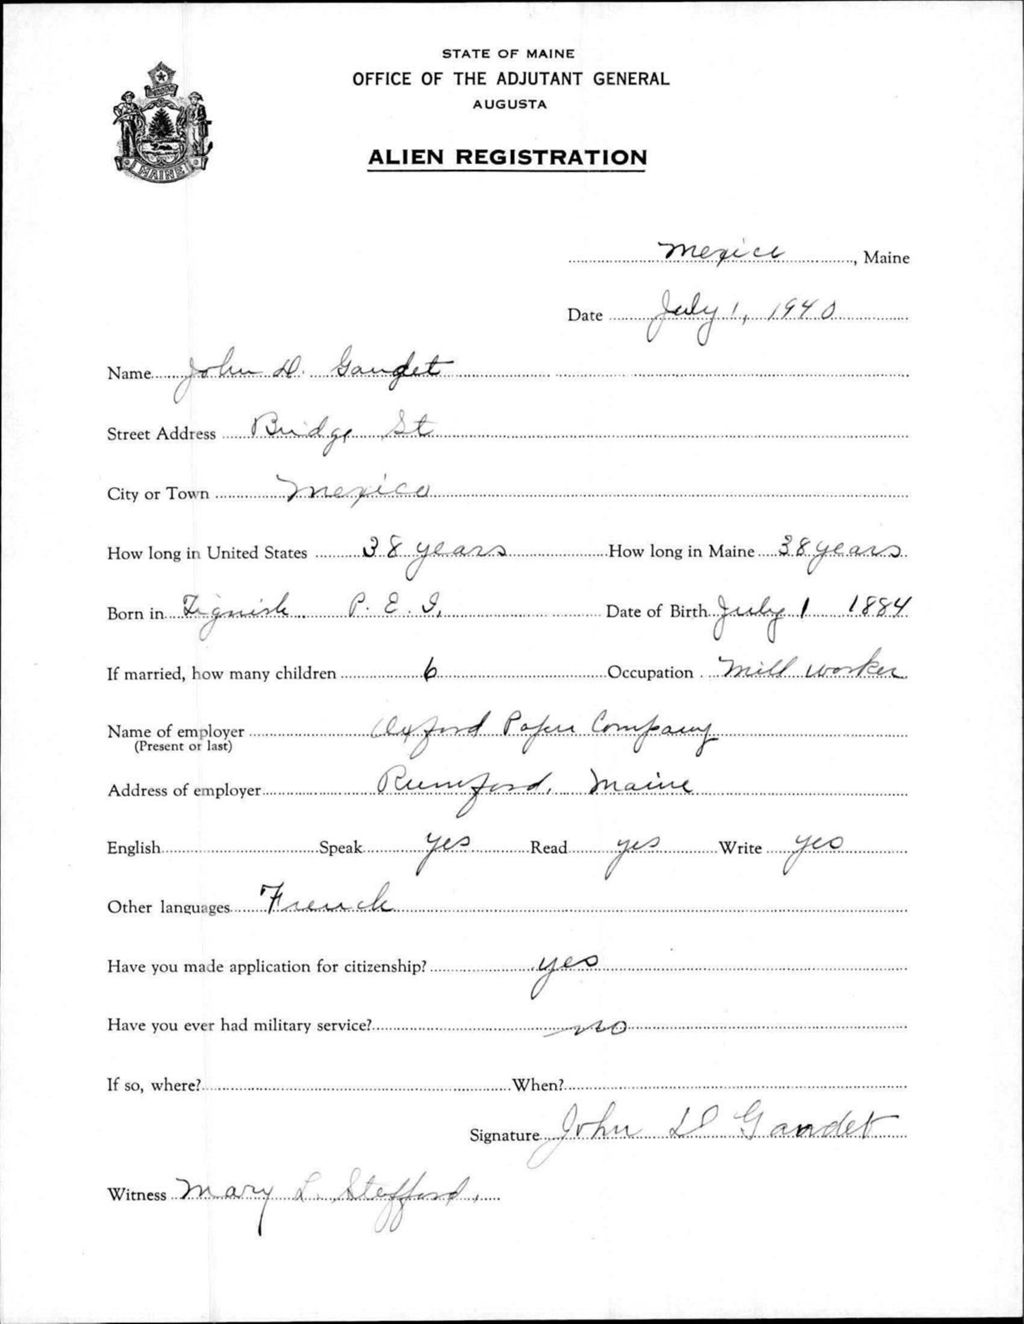 STATE OF MAINE
OFFICE OF THE ADJUTANT GENERAL
AUGUSTA
ALIEN REGISTRATION
MAINE
Mexico, Maine
Date July 1, 1940
Name John D. Gaudet
Street Address Bridge St
City or Town Mexico
How long in United States 38 years How long in Maine 38 years
Born in Tignish P. E. I. Date of Birth July 1 1884
If married, how many children 6 Occupation Mill worker
Name of employer Oxford Paper Company
(Present or last)
Address of employer Rumford, Maine
English Speak yes Read yes Write yes
Other languages French
Have you made application for citizenship? yes
Have you ever had military service? no
If so, where? When?
Signature John D Gaudet
Witness Mary L. Stefford.